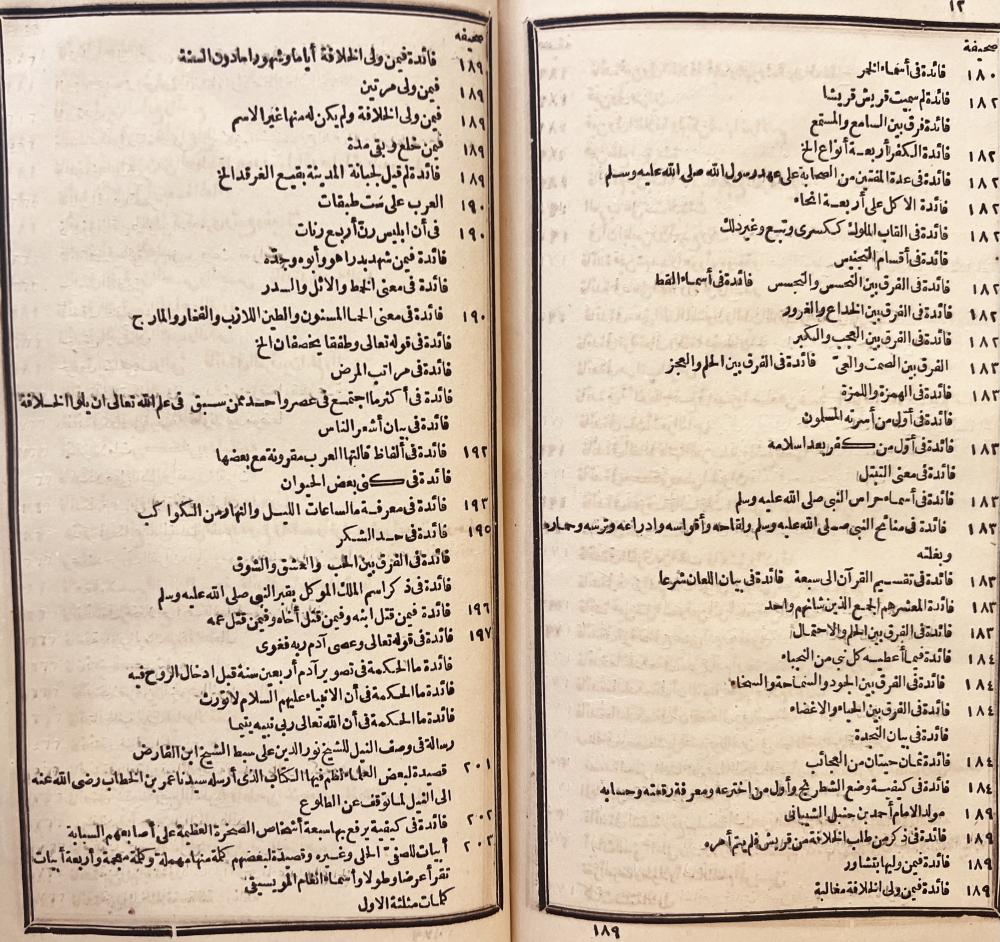 ١٢
صحيفة
١٨٠ فائدة فى أسماء الخمر
١٨٢ فائدة لم سميت قريش قريشا
فائدة فرق بين السامع والمستمع
١٨٢ فائدة الكفر أربعة أنواع الخ
١٨٢ فائدة فى عدة المفتين من الصحابة على عهد رسول الله صلى الله عليه وسلم
١٨٢ فائدة الاكل على أربعة انحاء
١٨٢ فائدة فى القاب الملوك ككسرى وتبع وغير ذلك
فائدة فى أقسام التجنيس
١٨٢ فائدة فى الفرق بين التحسس والتجسس فائدة فى أسماء القط
١٨٢ فائدة فى الفرق بين الخداع والغرور
١٨٢ فائدة فى الفرق بين العجب والكبر
١٨٣ الفرق بين الصمت والعىّ فائدة فى الفرق بين الحلم والعجز
١٨٣ فائدة فى الهمزة واللمزة
فائدة فى أوّل من أسرته المسلمون
١٨٣ فائدة فى أوّل من كفر بعد اسلامه
فائدة فى معنى التبتل
١٨٣ فائدة فى أسماء حراس النبى صلى الله عليه وسلم
١٨٣ فائدة فى منائح النبى صلى الله عليه وسلم ولقاحه وأقواسه وادراعه وترسه وحماره
وبغلته
١٨٣ فائدة فى تقسيم القرآن الى سبعة فائدة فى بيان اللعان شرعا
١٨٣ فائدة المعشر هم الجمع الذين شانهم واحد
١٨٣ فائدة فى الفرق بين الحلم والاحتمال
١٨٤ فائدة فيما أعطيه كل نبى من النجباء
١٨٤ فائدة فى الفرق بين الجود والسماحة والسخاء
١٨٤ فائدة فى الفرق بين الحياء والاغضاء
فائدة فى بيان النجدة
١٨٤ فائدة ثمان حيتان من العجائب
١٨٤ فائدة فى كيفية وضع الشطرنج وأول من اخترعه ومعرفة رقعته وحسابه
١٨٩ مولد الامام أحمد بن حنبل الشيبانى
١٨٩ فائدة فى ذكر من طلب الخلافة من قريش فلم يتم أمره
١٨٩ فائدة فيمن وليها بتشاور
١٨٩ فائدة فيمن ولى الخلافة مغالبة
١٨٩
صحيفه
١٨٩ فائدة فيمن ولى الخلافة أياما وشهورا مادون السنة
١٨٩ فيمن ولى مرتين
١٨٩ فيمن ولى الخلافة ولم يكن له منها غير الاسم
١٨٩ فيمن خلع وبقى مدة
١٨٩ فائدة لم قيل لجبانة المدينة بقيع الغرقد الخ
١٩٠ العرب على ست طبقات
١٩٠ فى أن ابليس رنّ أربع رنات
فائدة فيمن شهد بدرا هو وأبوه وجدّه
فائدة فى معنى الخمط والاثل والسدر
١٩٠ فائدة فى معنى الحما المسنون والطين اللازب والفخار والمارج
فائدة فى قوله تعالى وطفقا يخصفان الخ
فائدة فى مراتب المرض
فائدة فى أكثر ما اجتمع فى عصر واحد ممن سبق فى علم الله تعالى ان يلوا الخلافة
فائدة فى بيان أشعر الناس
١٩٢ فائدة فى ألفاظ قالتها العرب مقرونة مع بعضها
فائدة فى كنى بعض الحيوان
١٩٣ فائدة فى معرفة ما لساعات الليل والنهار من الكواكب
١٩٥ فائدة فى حد الشكر
فائدة فى الفرق بين الحب والعشق والشوق
فائدة فى ذكر اسم الملك الموكل بقبر النبى صلى الله عليه وسلم
١٩٦ فائدة فيمن قتل ابنه وفيمن قتل أخاه وفيمن قتل عمه
١٩٧ فائدة فى قوله تعالى وعصى آدم ربه فغوى
فائدة ما الحكمة فى تصوير آدم أربعين سنة قبل ادخال الروح فيه
فائدة ما الحكمة فى أن الانبياء عليهم السلام لا تورث
فائدة ما الحكمة فى أن الله تعالى ربى نبيه يتيما
رسالة فى وصف النيل للشيخ نور الدين على سبط الشيخ ابن الفارض
٢٠١ قصيدة لبعض العلماء نظم فيها الكتاب الذى أرسله سيدنا عمر بن الخطاب رضى الله عنه
الى النيل لما توقف عن الطلوع
٢٠٢ فائدة فى كيفية يرفع بها سبعة أشخاص الصخرة العظيمة على أصابعهم السبابة
٢٠٣ أبيات للصفىّ الحلى وغيره وقصيدة لبعضهم كلمة منها مهملة وكلمة معجمة وأربعة أبيات
تقرأ عرضا وطولا وأسماء انغام الموسيقى
كلمات مثلثة الاول